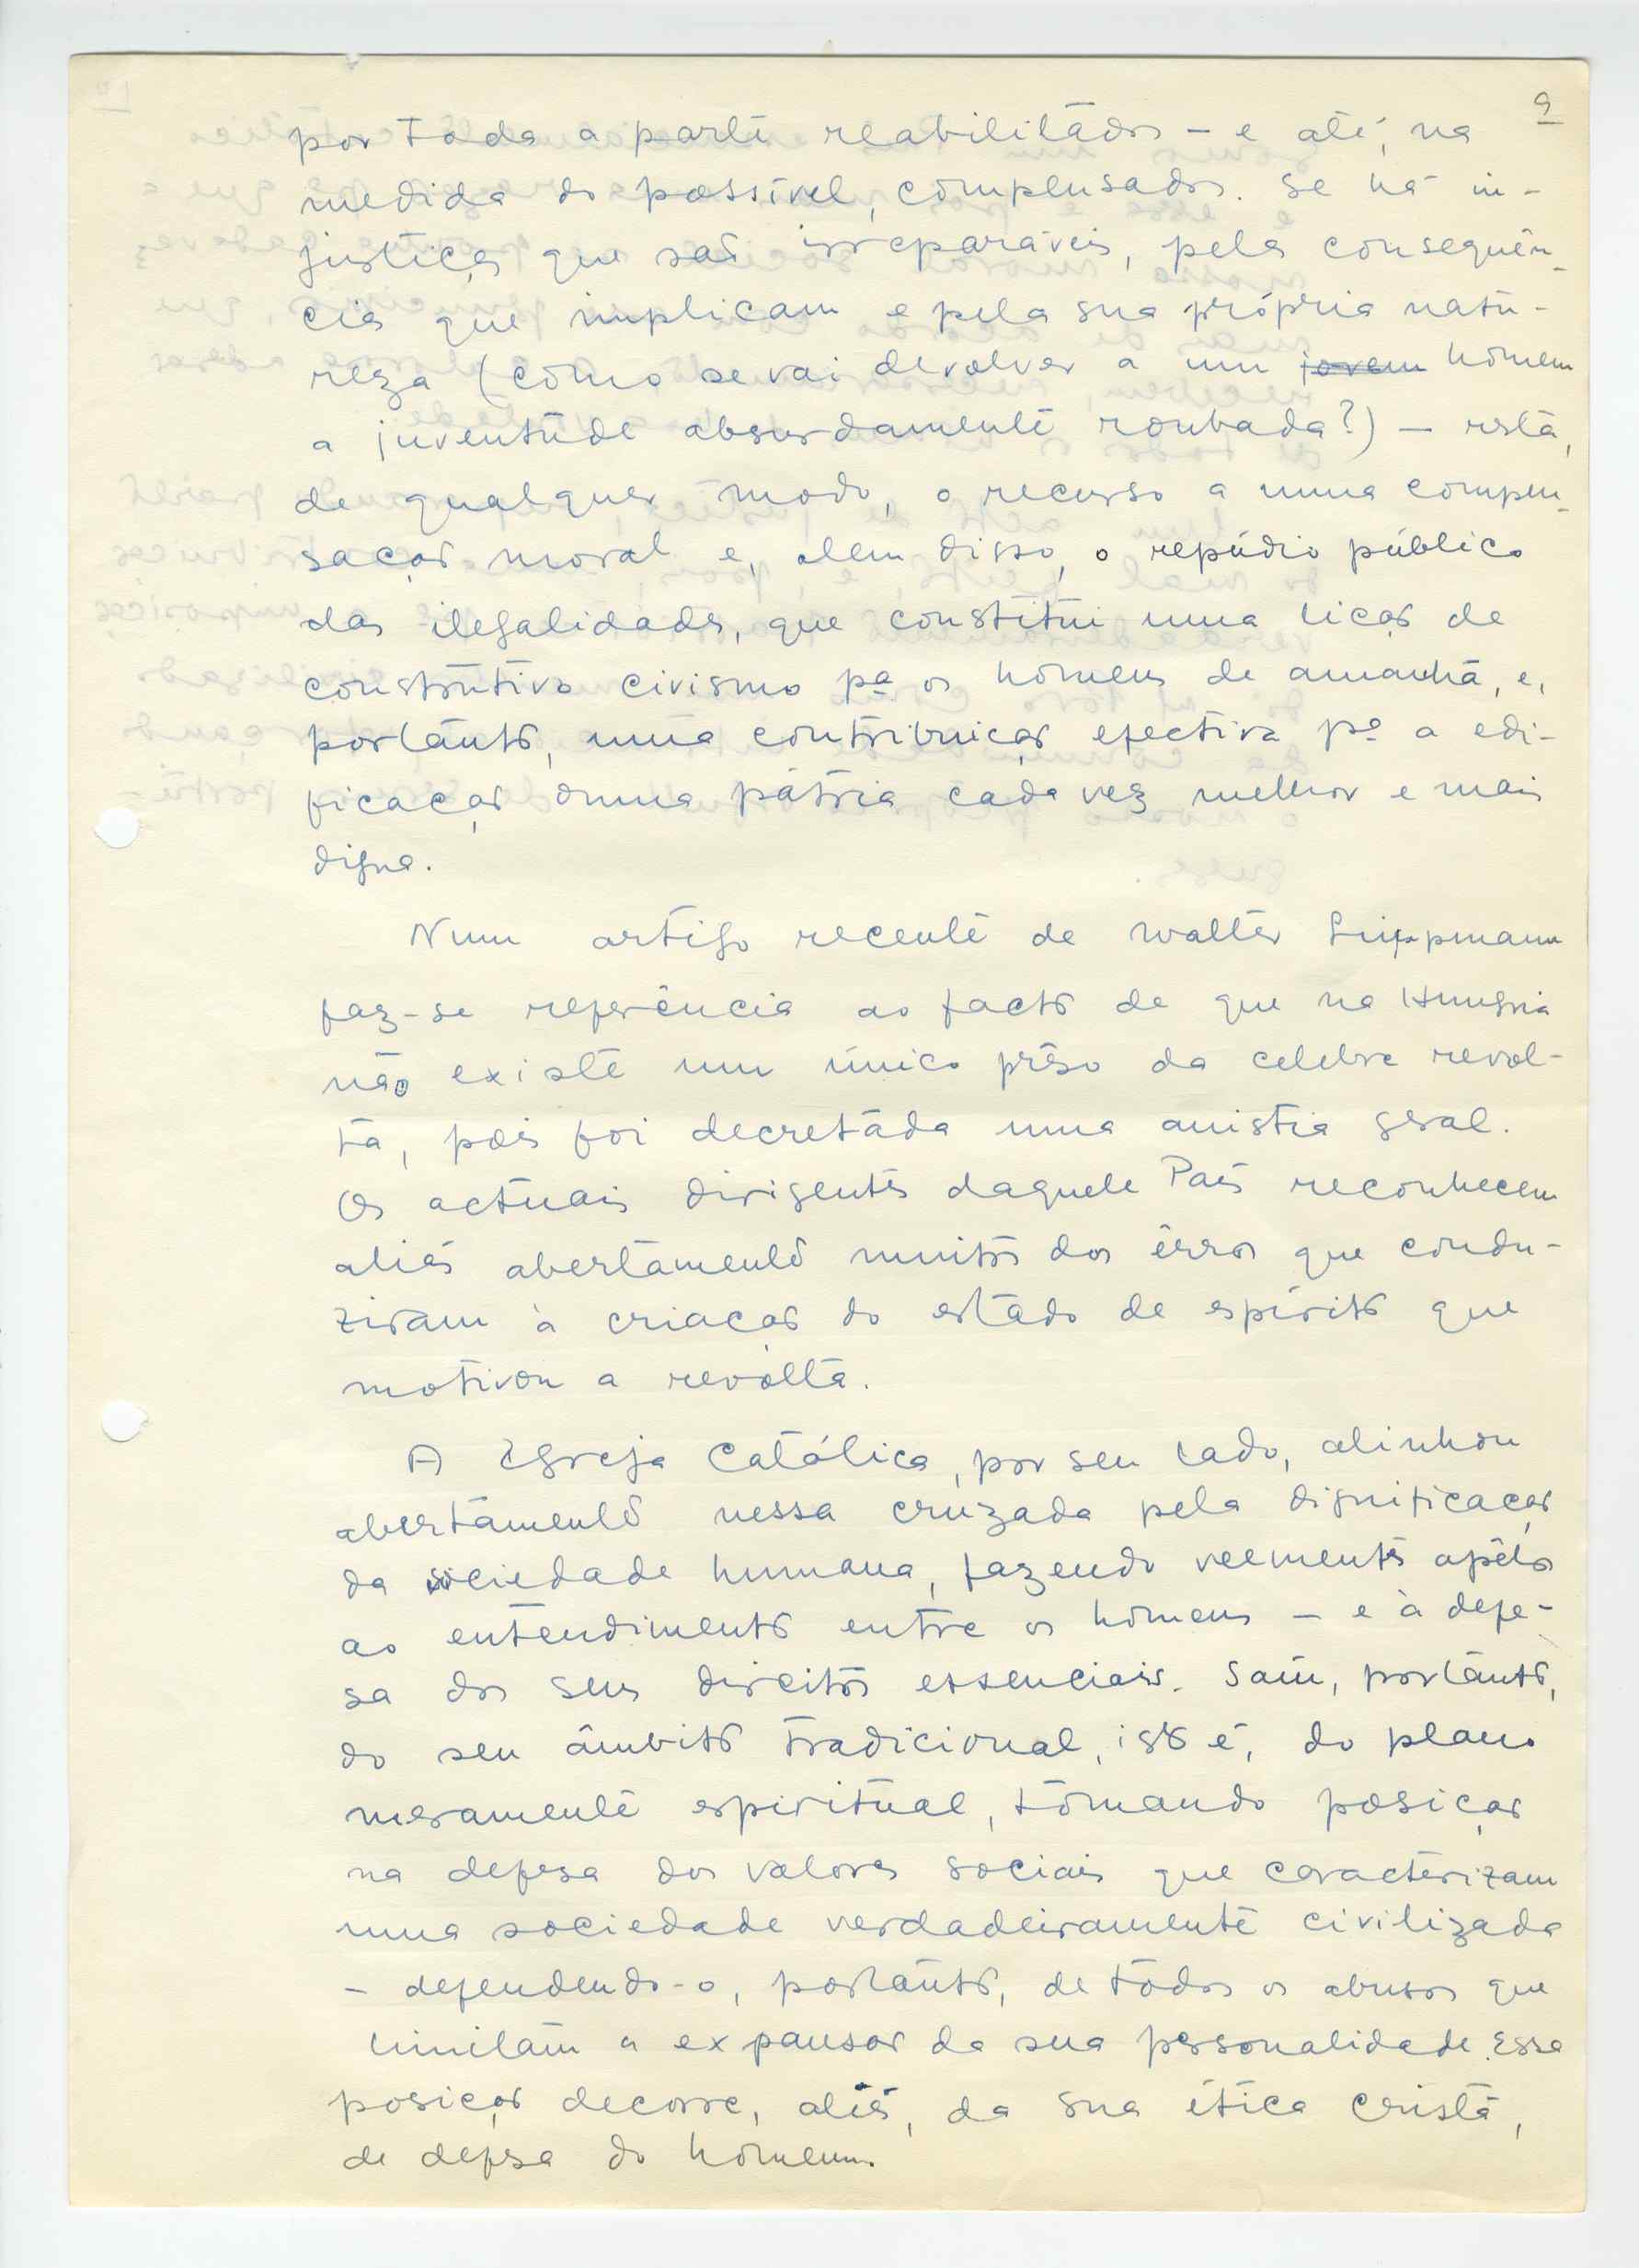 9
por toda a parte reabilitados – e até, na
medida do possível, compensados. Se há in-
justiças que são irreparáveis, pelas consequên-
cias que implicam e pela sua própria natu-
reza (como se vai devolver a um jovem homem
a juventude absurdamente roubada?) – resta,
de qualquer modo, o recurso a uma compen-
sação moral e, além disso, o repúdio público
das ilegalidades, que constitui uma lição de
construtivo civismo pª os homens de amanhã, e,
portanto, uma contribuição efectiva pª a edi-
ficação duma pátria cada vez melhor e mais
digna.
Num artigo recente de Walter Lippmann
faz-se referência ao facto de que na Hungria
não existe um único prêso da celebre revol-
ta, pois foi decretada uma anistia geral.
Os actuais dirigentes daquele País reconhecem
aliás abertamente muitos dos êrros que condu-
ziram à criação do estado de espírito que
motivou a revolta.
A Igreja Católica, por seu lado, alinhou
abertamente nessa cruzada pela dignificação
da sociedade humana, fazendo veementes apêlos
ao entendimento entre os homens – e à defe-
sa dos seus direitos essenciais. Saiu, portanto,
do seu âmbito tradicional, isto é, do plano
meramente espiritual, tomando posição
na defesa dos valores sociais que caracterizam
uma sociedade verdadeiramente civilizada
– defendendo-o, portanto, de todos os abusos que
limitam a expansão da sua personalidade. Essa
posição decorre, aliás, da sua ética cristã,
de defesa do homem.